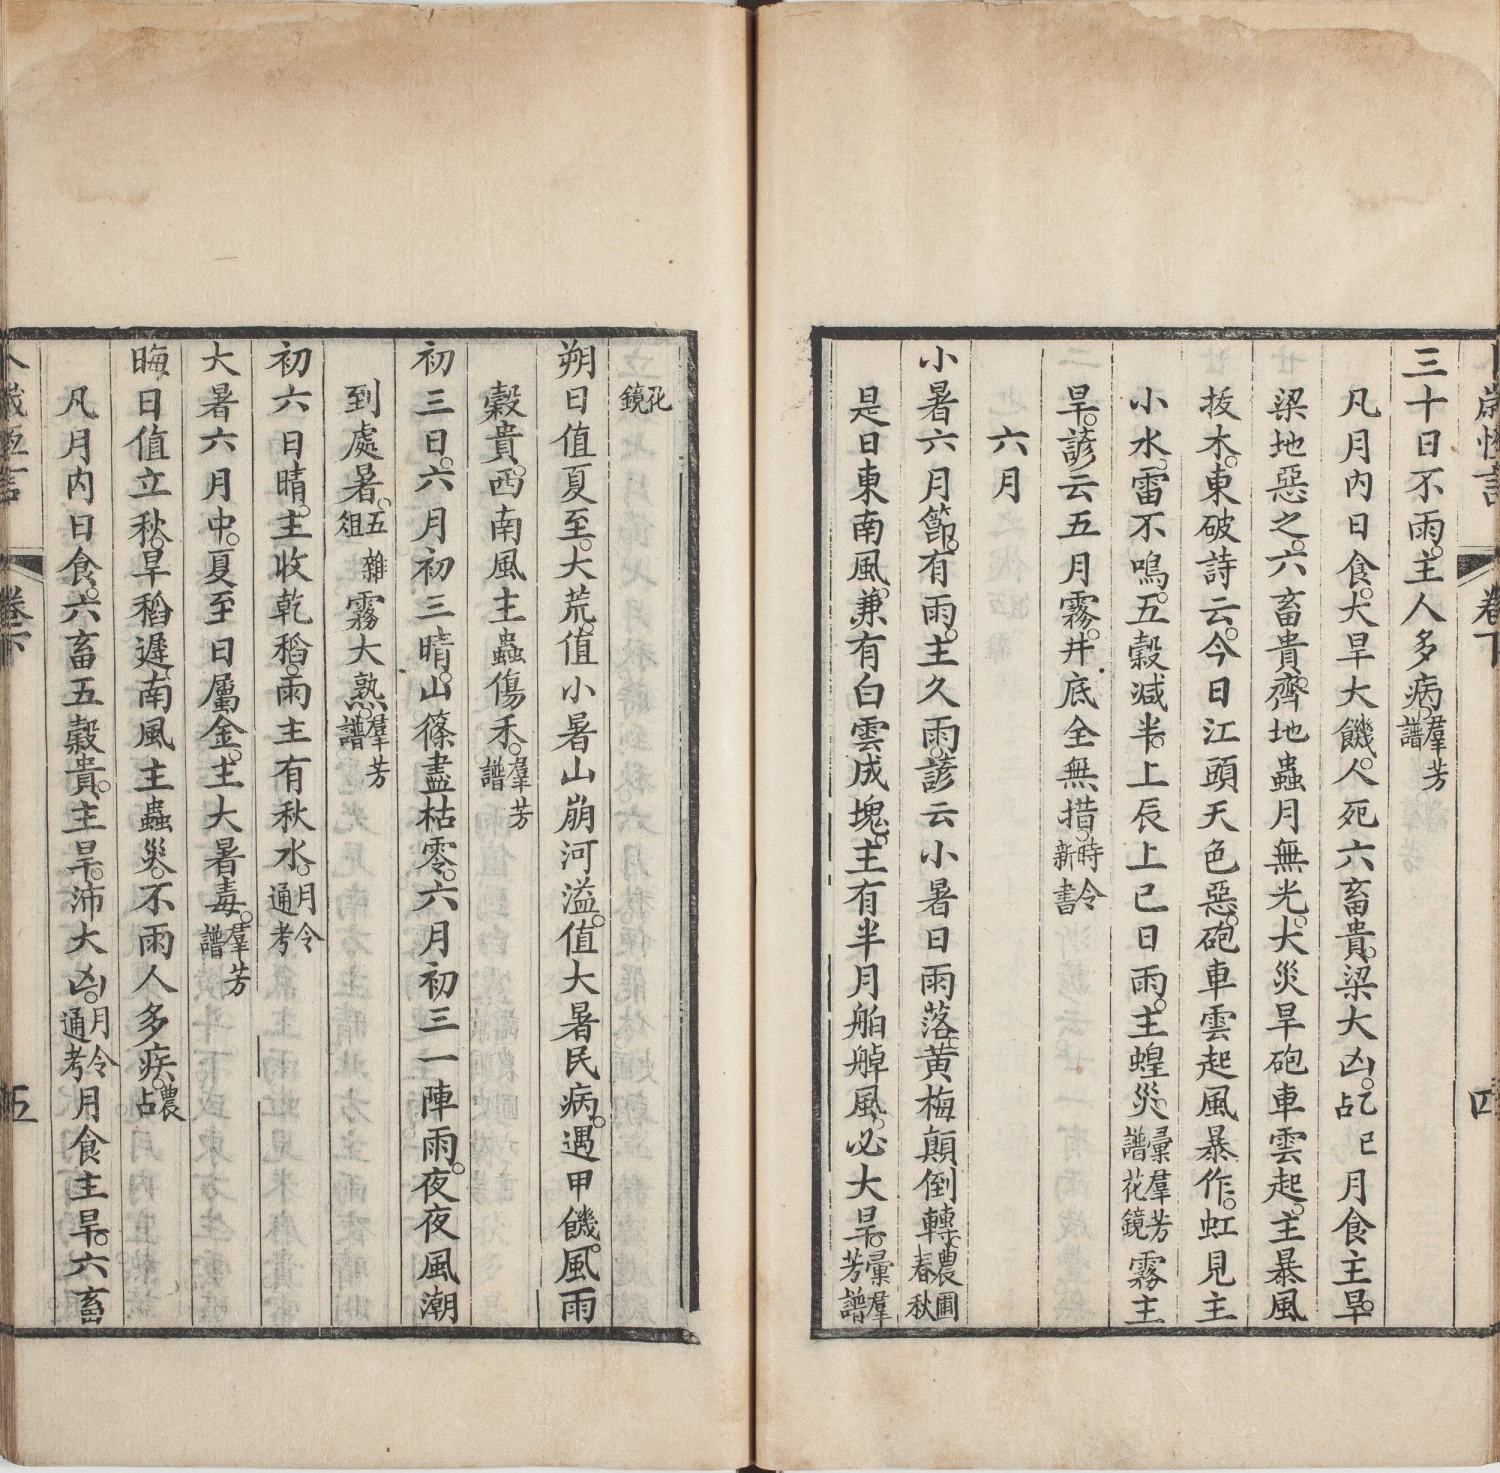 卷下
四
三十日不雨主人多病羣芳譜
凡月內日食大旱大饑人死六畜貴梁大凶占乙巳月食主旱
梁地惡之六畜貴齊地蟲月無光大災旱砲車雲起主暴風
拔木東破詩云今日江頭天色惡砲車雲起風暴作虹見主
小水雷不鳴五穀減半上辰上巳日雨主蝗災彙羣芳譜花鏡霧主
旱諺云五月霧井底全無措時令新書
六月
小暑六月節有雨主久雨諺云小暑日雨落黃梅顛倒轉農圃春秋
是日東南風兼有白雲成塊主有半月舶䑲風必大旱彙羣芳譜
花鏡
朔日值夏至大荒值小暑山崩河溢值大暑民病遇甲饑風雨
穀貴西南風主蟲傷禾羣芳譜
初三日六月初三晴山篠盡枯零六月初三一陣雨夜夜風潮
到處暑五雜俎霧大熟羣芳譜
初六日晴主收乾稻雨主有秋水月令通考
大暑六月中夏至日屬金主大暑毒羣芳譜
晦日值立秋旱稻遲南風主蟲災不雨人多疾農占
凡月內日食六畜五穀貴主旱沛大凶月令通考月食主旱六畜
卷下
五